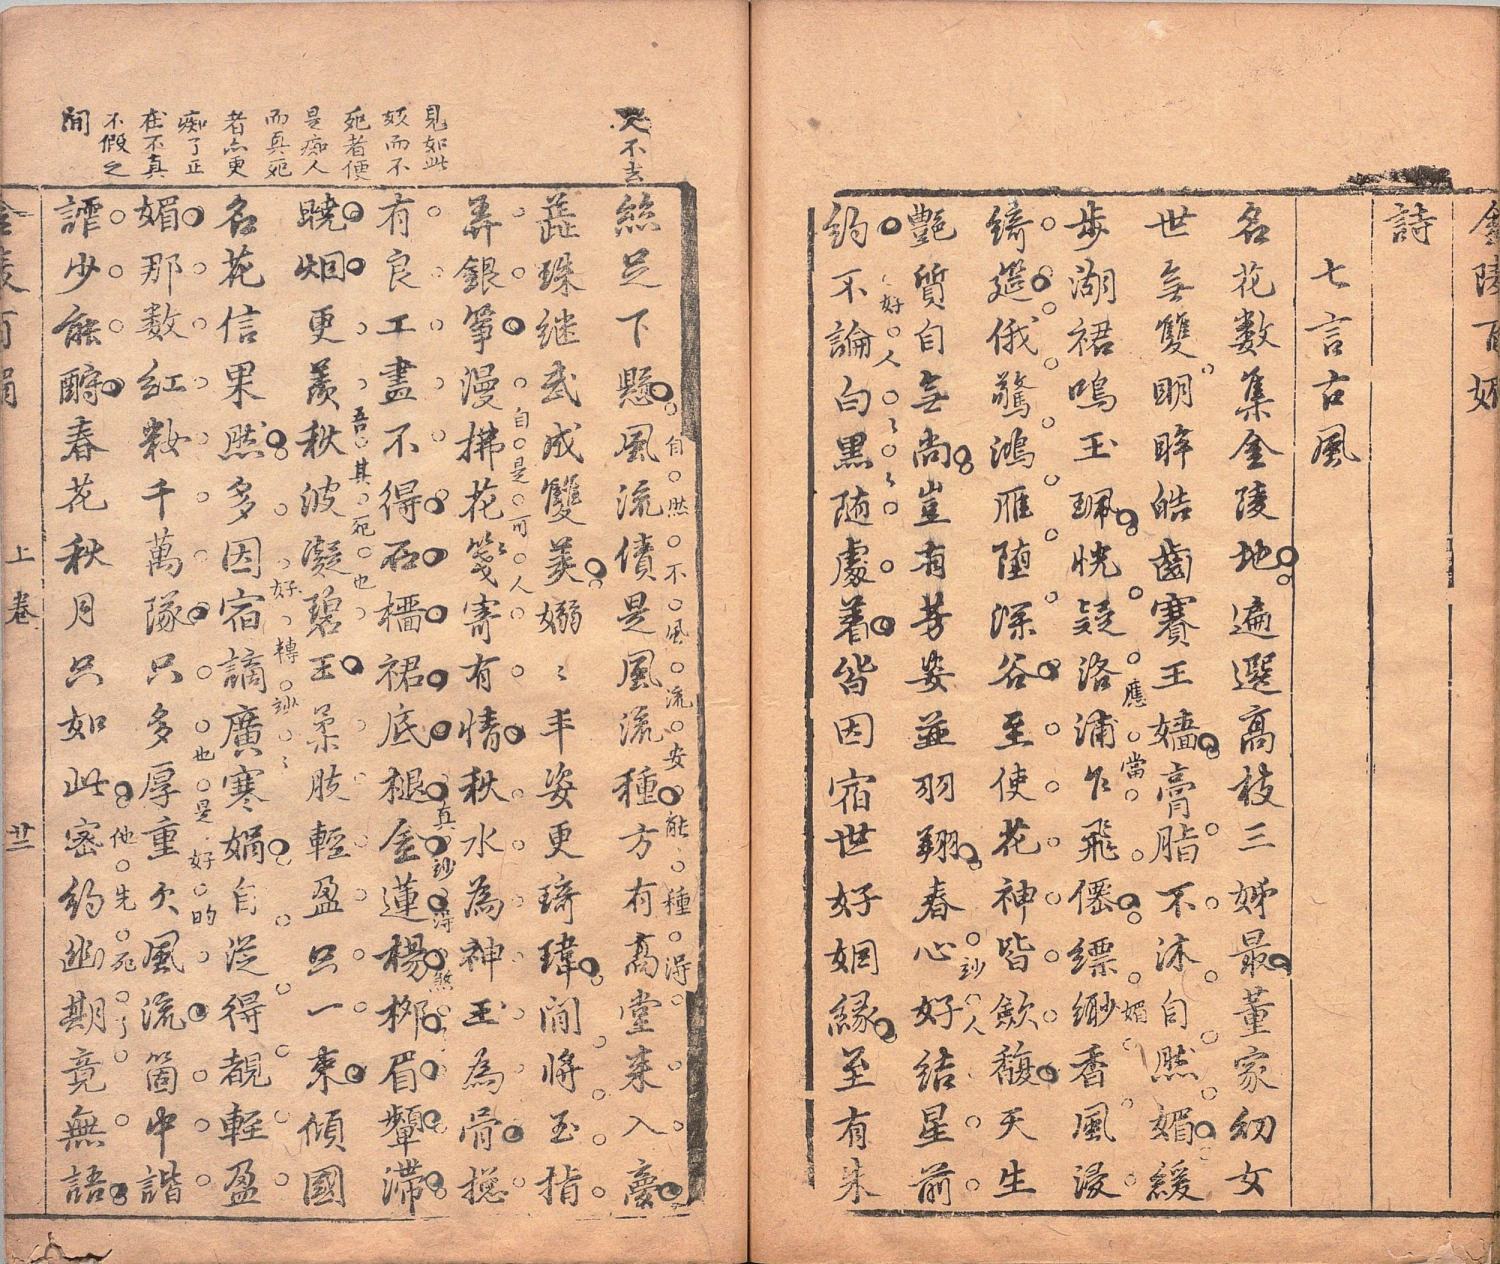 金陵百媚
詩
七言古風
名花數集金陵地遍選高枝三姊最董家幼女
世無雙明眸皓齒賽王嬙膏脂不沐自然媚緩
步湖裙鳴玉珮恍疑洛浦乍飛僊縹緲香風浸
綺筵俄驚鴻雁墮深谷至使花神皆歛馥天生
艷質自無尚豈有芳姿並羽翔春心好結星前
約不論白黒随處着皆因宿世好姻緣至有朱
應當媚
妙人
好人
不去
絲足下懸風流債是風流種方有高堂來入夢
自然不風流安能種得
珠继武成雙美嫋〻丰姿更琦瑋間將玉指
弄銀箏漫拂花箋寄有情秋水為神玉為骨摠
自是可人
有良工畫不得石榴裙底褪金蓮楊柳眉顰滯
真妙得煞
曉烟更羨秋波凝碧玉柔肢輕盈只一束傾國
吾其死也
名花信果然多因宿謫廣寒娟自從得覩輕盈
好轉詠
媚那數紅粧千萬隊只多厚重欠風流箇中諧
也是好的
謔少能酧春花秋月只如此密約幽期竟無語
他先死了
見如此
妓而不
死者便
是痴人
而真死
者亦更
痴了正
在不真
不假之
間
上卷
廿三